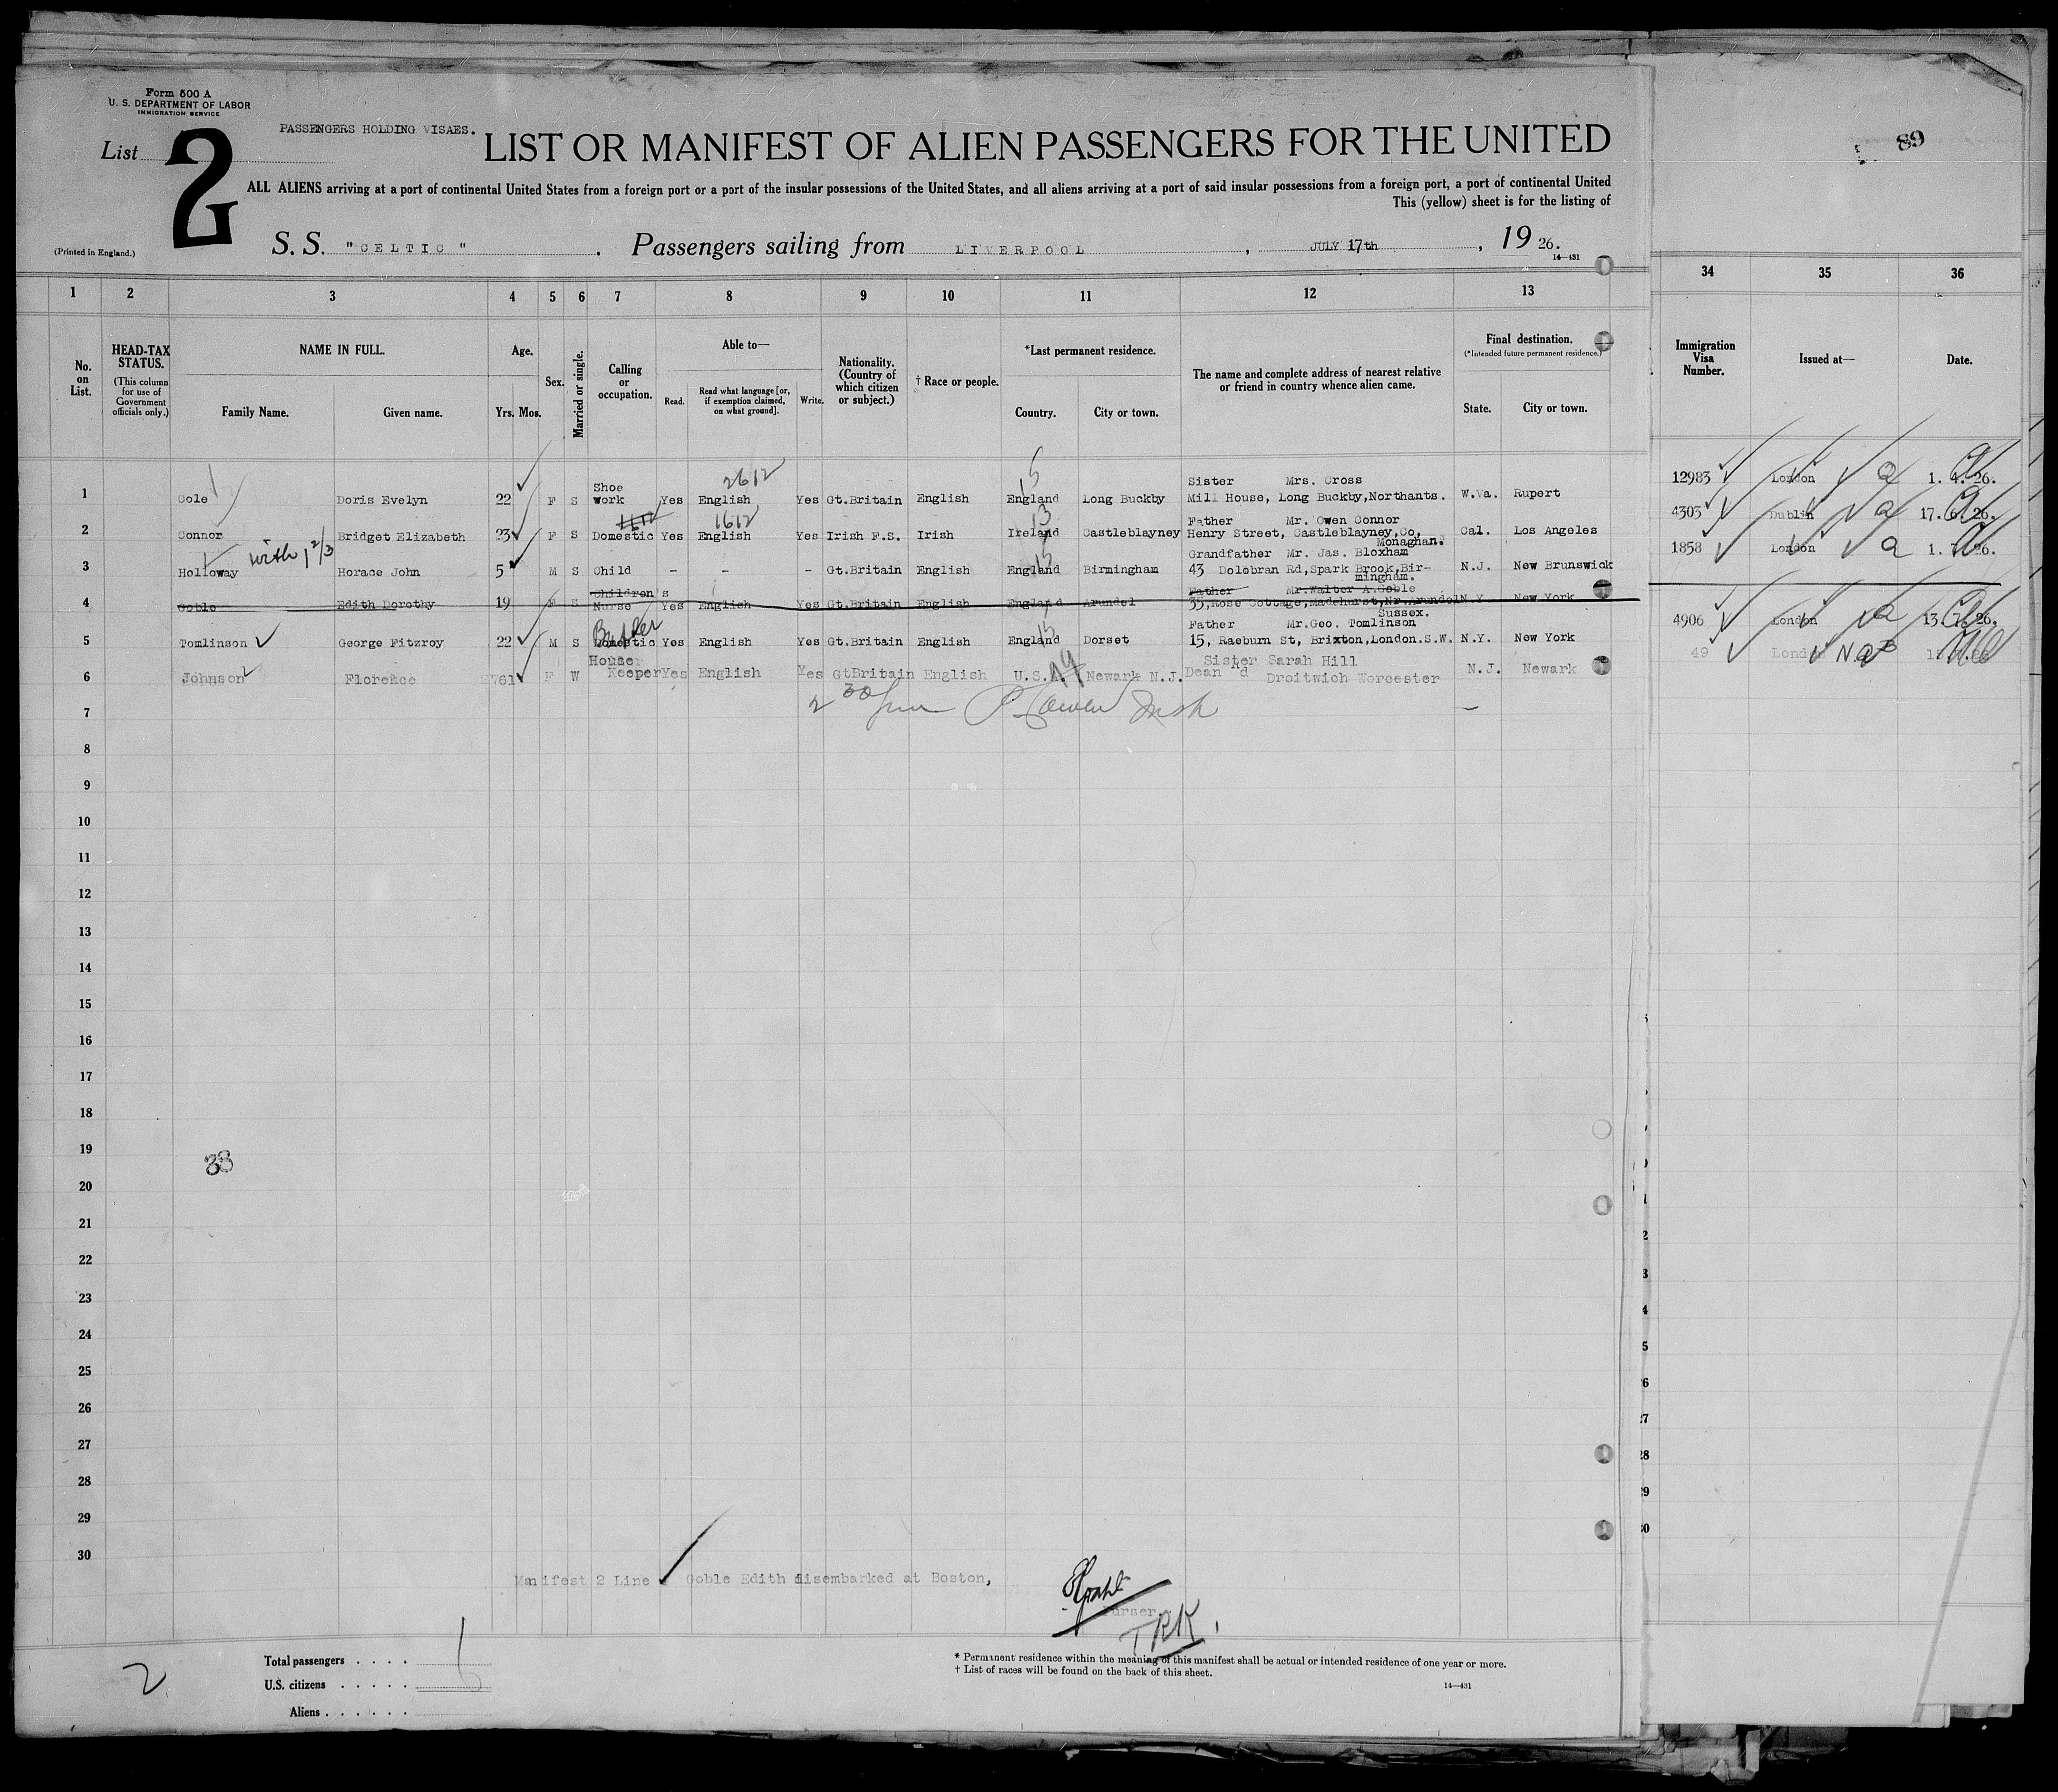 Form 500 A
U. S. DEPARTMENT OF LABOR
IMMIGRATION SERVICE
List 2
PASSENGERS HOLDING VISAES.
LIST OR MANIFEST OF ALIEN PASSENGERS FOR THE UNITED
89
ALL ALIENS arriving at a port of continental United States from a foreign port or a port of the insular possessions of the United States, and all aliens arriving at a port of said insular possessions from a foreign port, a port of continental United
This (yellow) sheet is for the listing of
(Printed in England.)
S. S. "CELTIC". Passengers sailing from LIVERPOOL, JULY 17th, 19 26.
14—431
1 2 3 4 5 6 7 8 9 10 11 12 13 34 35 36
No. on List.
HEAD-TAX STATUS.
(This column for use of Government officials only.)
NAME IN FULL.
Family Name. Given name.
Age.
Yrs. Mos.
Sex.
Married or single.
Calling or occupation.
Able to—
Read. Read what language [or, if exemption claimed, on what ground]. Write.
Nationality. (Country of which citizen or subject.)
† Race or people.
*Last permanent residence.
Country. City or town.
The name and complete address of nearest relative or friend in country whence alien came.
Final destination.
(*Intended future permanent residence.)
State. City or town.
Immigration Visa Number.
Issued at—
Date.
2612 15
1 Cole Doris Evelyn 22 F S Shoe work Yes English Yes Gt.Britain English England Long Buckby Sister Mrs. Cross Mill House, Long Buckby,Northants. W.Va. Rupert 12983 London 1. 4. 26.
1612 13
2 Connor Bridget Elizabeth 23 F S Domestic Yes English Yes Irish F.S. Irish Ireland Castleblayney Father Mr. Owen Connor Henry Street, Castleblayney,Co, Monaghan. Cal. Los Angeles 4303 Dublin 17. 6. 26.
with 1 2/3 15
3 Holloway Horace John 5 M S Child - - - Gt.Britain English England Birmingham Grandfather Mr. Jas. Bloxham 43 Dolobran Rd,Spark Brook,Birmingham. N.J. New Brunswick 1858 London 1. 7. 26.
4 Goble Edith Dorothy 19 F S Children's Nurse Yes English Yes Gt.Britain English England Arundel Father Mr.Walter A.Goble 35,Rose Cottage,Madehurst,Nr.Arundel Sussex. N.Y. New York
Butler 15
5 Tomlinson George Fitzroy 22 M S Domestic Yes English Yes Gt.Britain English England Dorset Father Mr.Geo. Tomlinson 15, Raeburn St, Brixton,London.S.W. N.Y. New York 4906 London 13. 7. 26.
6 Johnson Florence 61 F W House Keeper Yes English Yes GtBritain English U.S.A. Newark N.J. Sister Sarah Hill Dean Droitwich Worcester N.J. Newark 49 London
7 2 30
8
9
10
11
12
13
14
15
16
17
18
19
33
20
21
22
23
24
25
26
27
28
29
30
Manifest 2 Line Goble Edith disembarked at Boston,
Purser.
TRK
2
Total passengers . . . .
U.S. citizens . . . . .
Aliens . . . . . .
* Permanent residence within the meaning of this manifest shall be actual or intended residence of one year or more.
† List of races will be found on the back of this sheet.
14—431